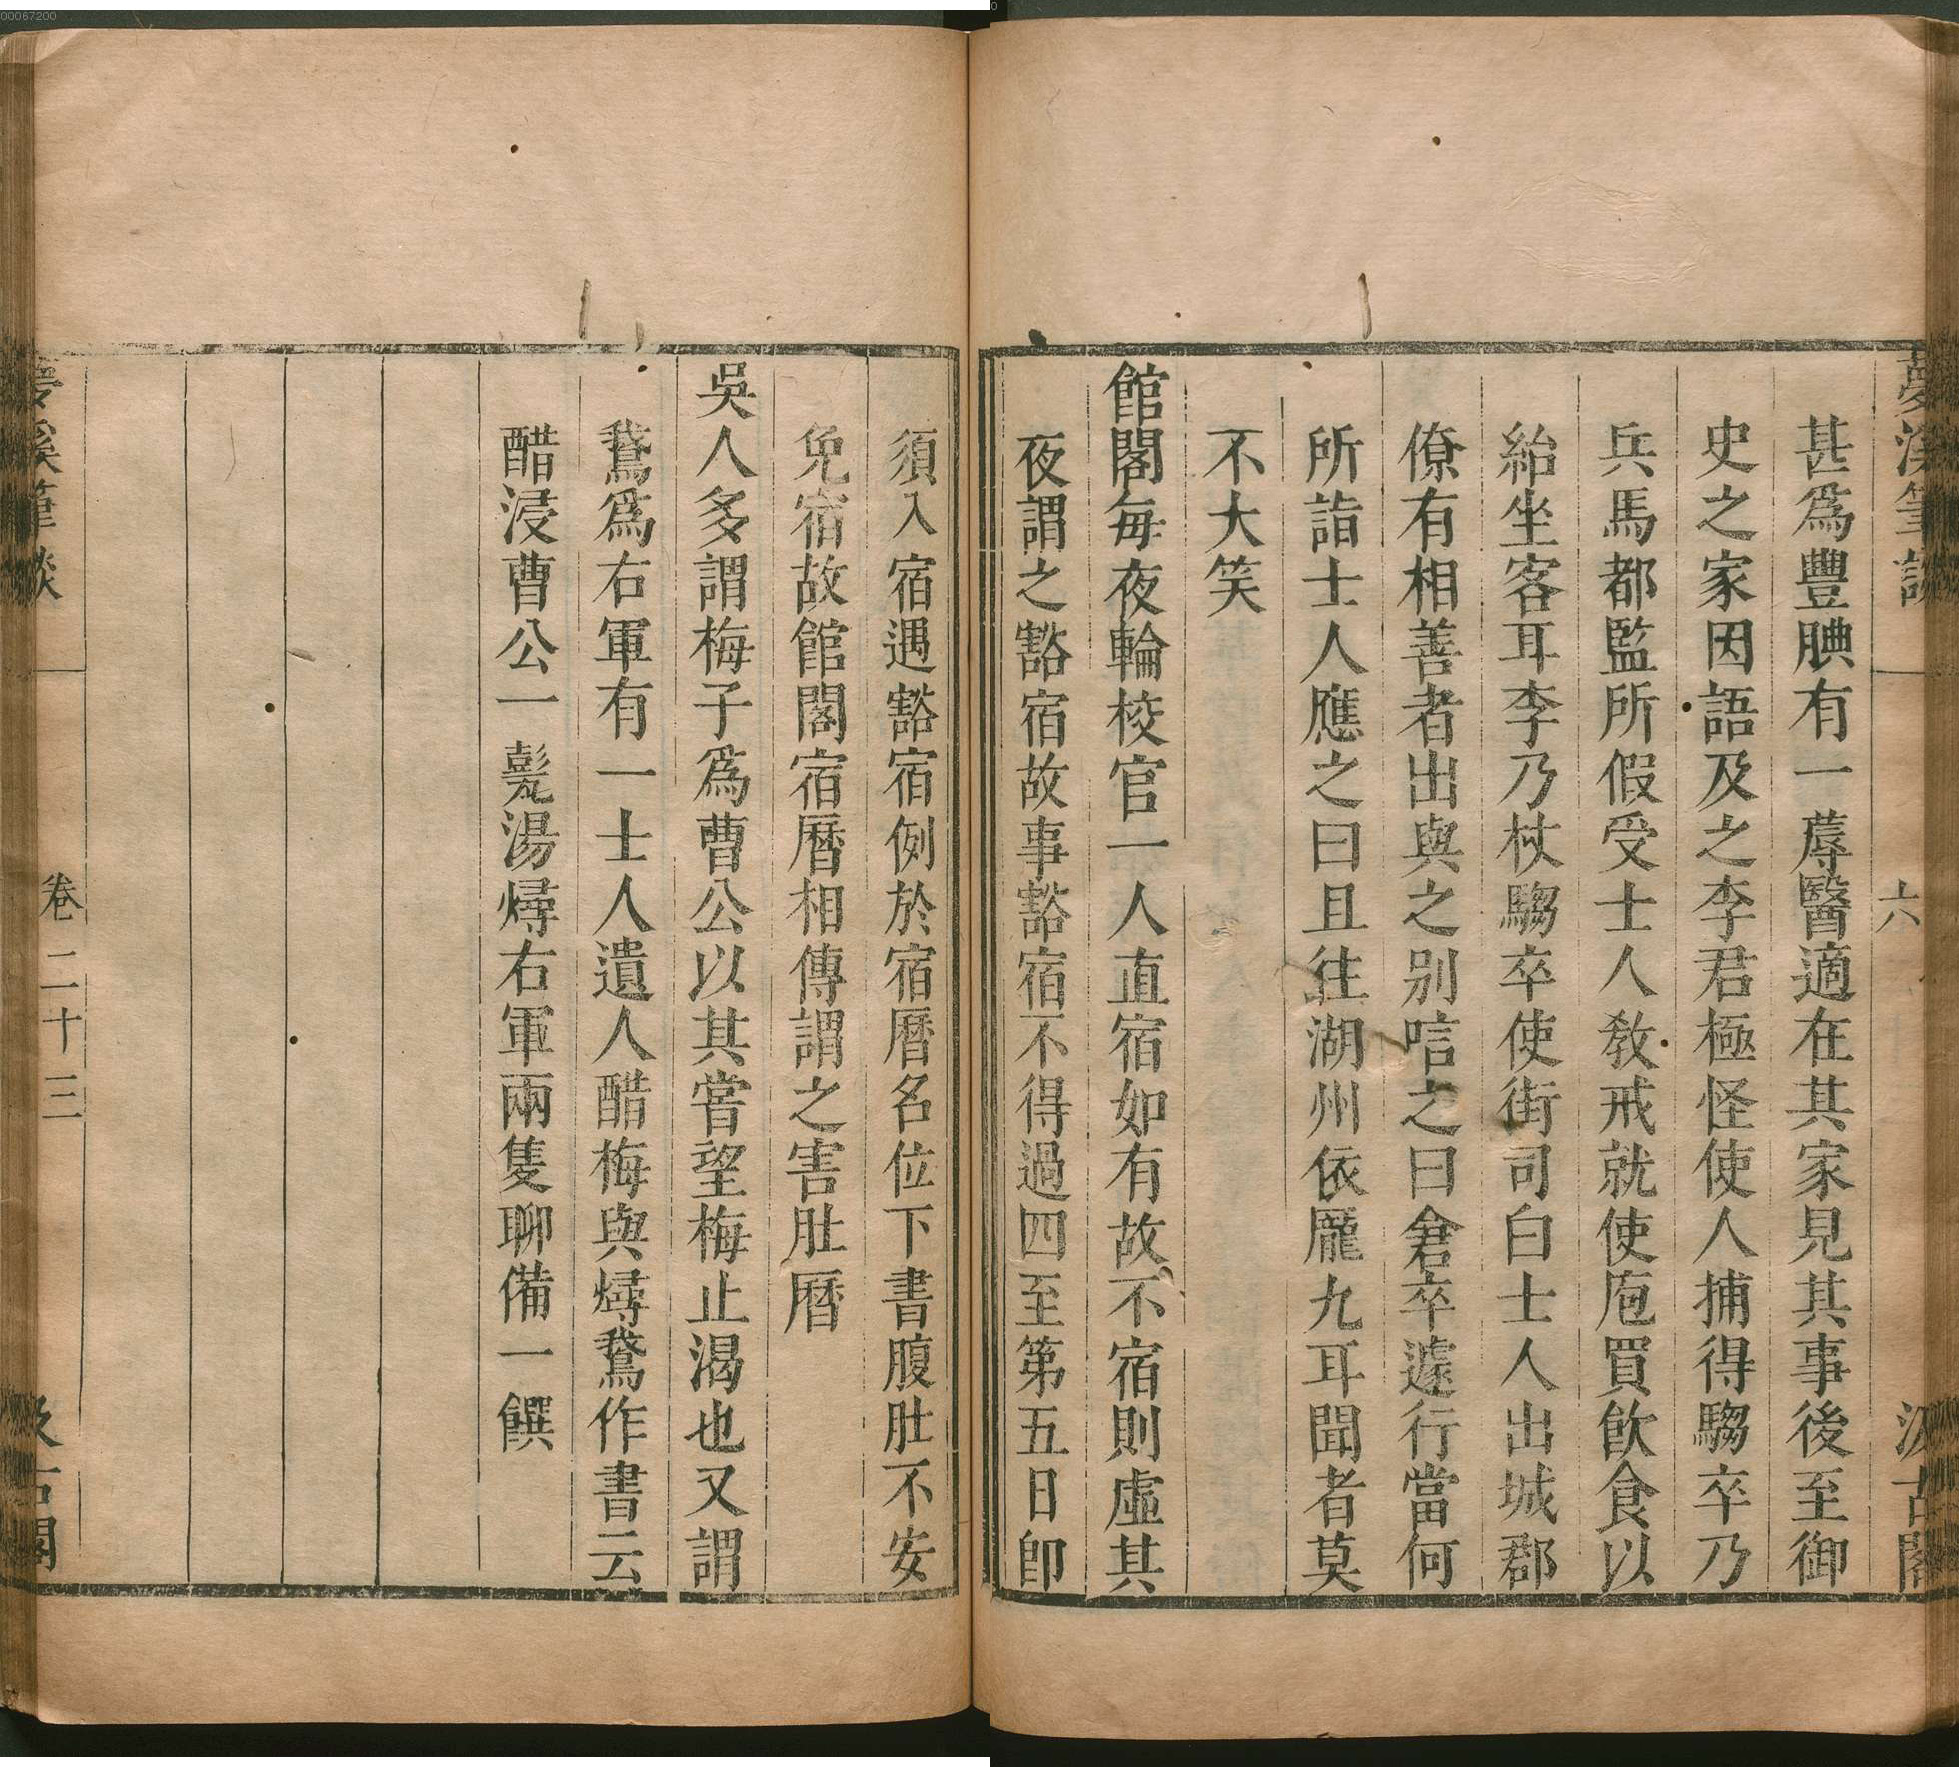 00067200
夢溪筆談
六
汲古閣
甚爲豐腆有一蓐醫適在其家見其事後至御
史之家因語及之李君極怪使人捕得騶卒乃
兵馬都監所假受士人教戒就使庖買飲食以
紿坐客耳李乃杖騶卒使街司白士人出城郡
僚有相善者出與之别唁之曰倉卒遽行當何
所詣士人應之曰且往湖州依龐九耳聞者莫
不大笑
館閣每夜輪校官一人直宿如有故不宿則虛其
夜謂之豁宿故事豁宿不得過四至第五日卽
須入宿遇豁宿例於宿曆名位下書腹肚不安
免宿故館閣宿曆相傳謂之害肚曆
吳人多謂梅子爲曹公以其嘗望梅止渴也又謂
鵞爲右軍有一士人遺人醋梅與燖鵞作書云
醋浸曹公一甏湯燖右軍兩隻聊備一饌
夢溪筆談
卷二十三
汲古閣